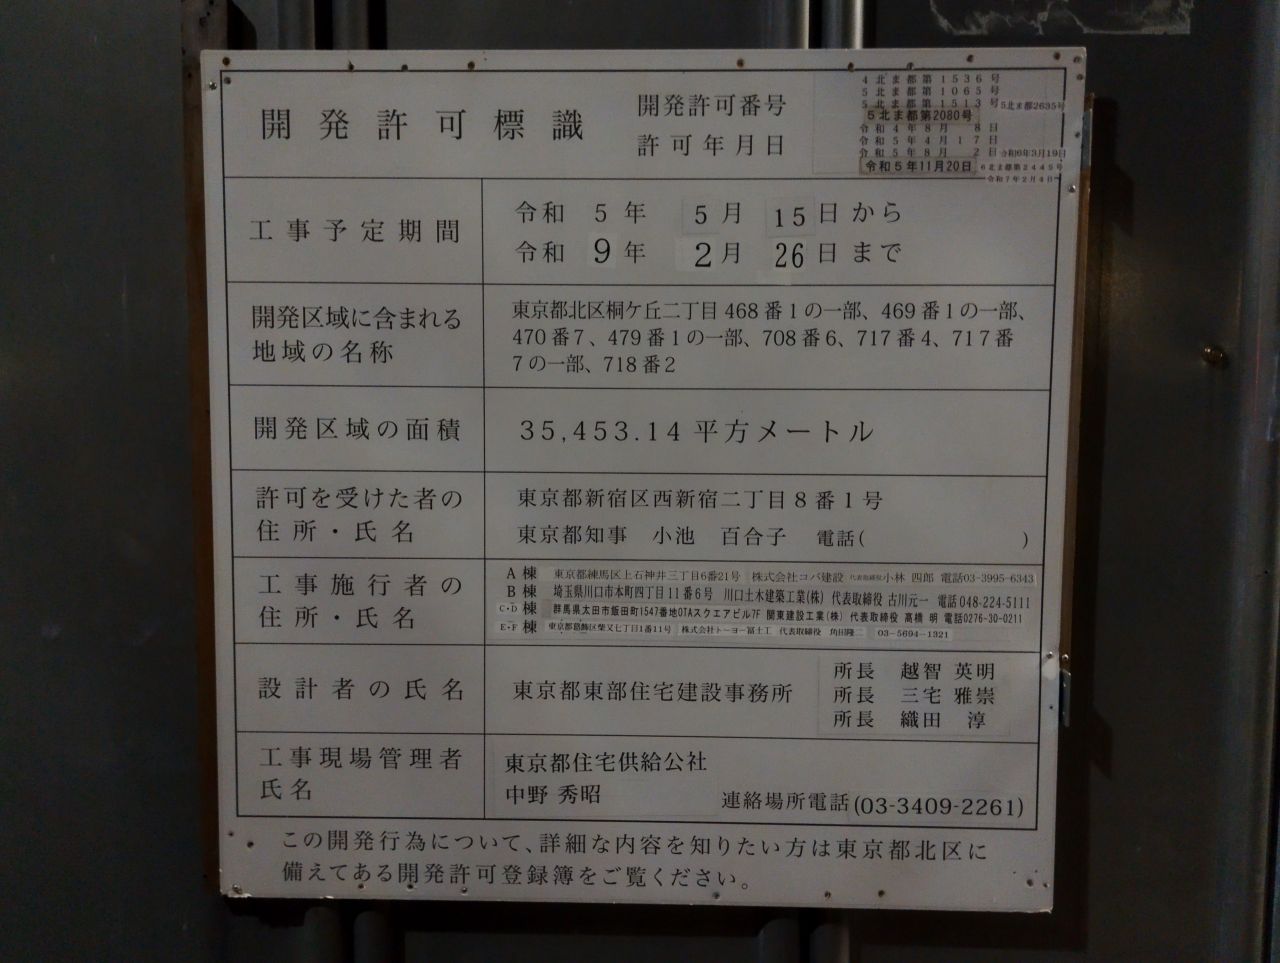 開発許可標識
開発許可番号
許可年月日
4北ま都第1536号
5北ま都第1065号
5北ま都第1513号 5北ま都2635号
5北ま都第2080号
令和4年8月8日
令和5年4月17日
令和5年8月2日 令和6年3月19日
令和5年11月20日 6北ま都第2445号
令和7年2月4日
工事予定期間
令和 5年 5月 15日から
令和 9年 2月 26日まで
開発区域に含まれる
地域の名称
東京都北区桐ケ丘二丁目468番1の一部、469番1の一部、
470番7、479番1の一部、708番6、717番4、717番
7の一部、718番2
開発区域の面積
35,453.14平方メートル
許可を受けた者の
住所・氏名
東京都新宿区西新宿二丁目8番1号
東京都知事 小池 百合子 電話( )
工事施行者の
住所・氏名
A棟 東京都練馬区上石神井三丁目6番21号 株式会社コバ建設 代表取締役小林 四郎 電話03-3995-6343
B棟 埼玉県川口市本町四丁目11番6号 川口土木建築工業(株) 代表取締役 古川元一 電話048-224-5111
C・D棟 群馬県太田市飯田町1547番地OTAスクエアビル7F 関東建設工業(株) 代表取締役 高橋 明 電話0276-30-0211
E・F棟 東京都葛飾区柴又七丁目1番11号 株式会社トーヨー冨士工 代表取締役 角田隆二 03-5694-1321
設計者の氏名
東京都東部住宅建設事務所
所長 越智 英明
所長 三宅 雅崇
所長 織田 淳
工事現場管理者
氏名
東京都住宅供給公社
中野 秀昭
連絡場所電話(03-3409-2261)
この開発行為について、詳細な内容を知りたい方は東京都北区に
備えてある開発許可登録簿をご覧ください。